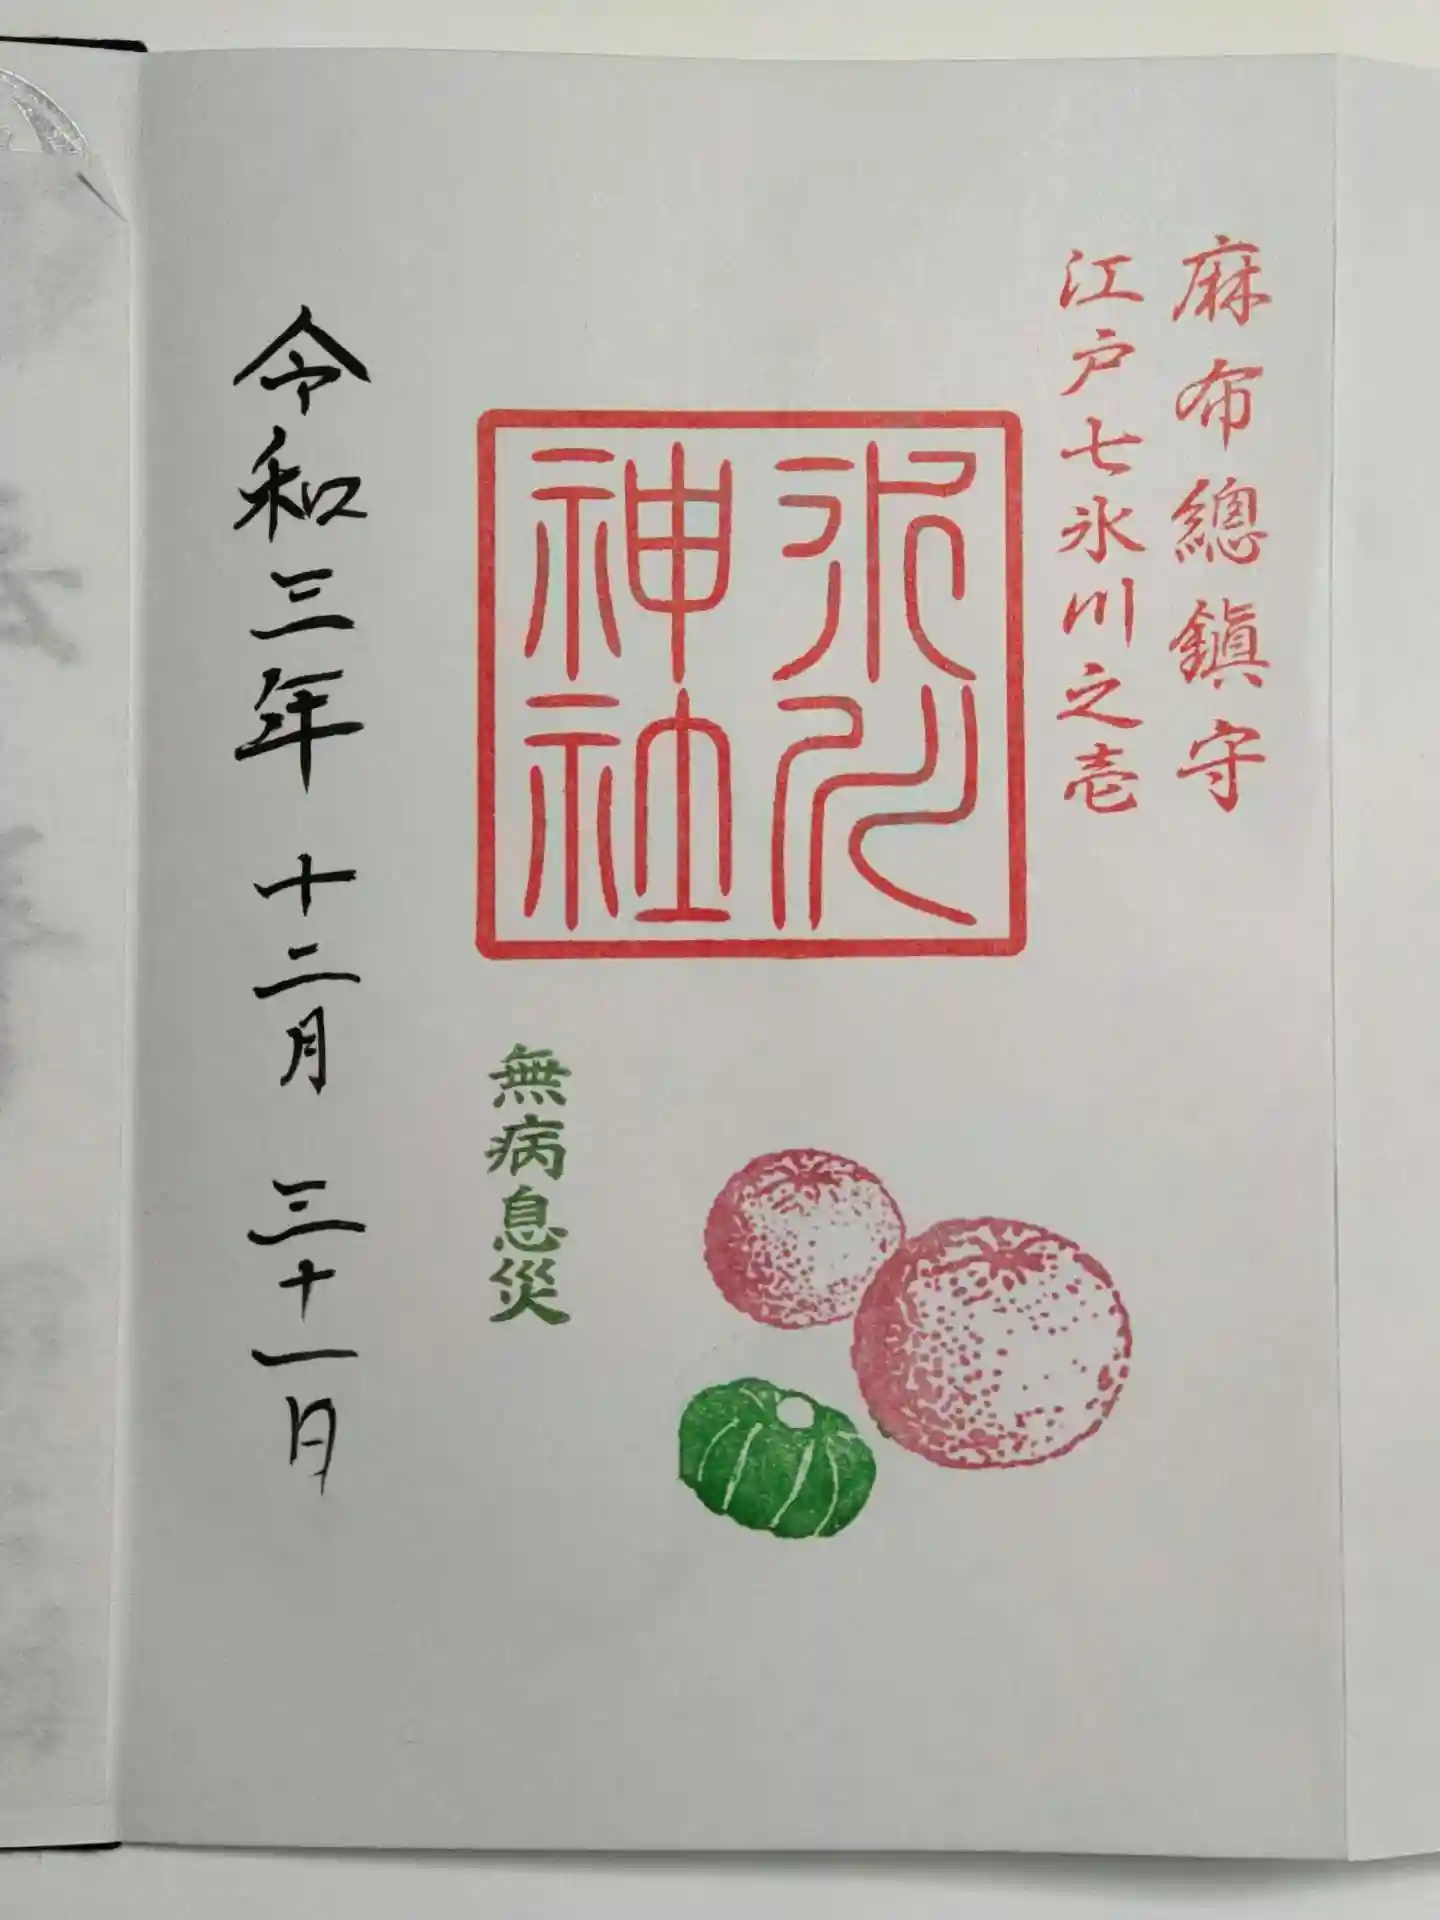 麻布總鎭守
江戸七氷川之壱
氷川
神社
無病息災
令和三年 十二月 三十一日